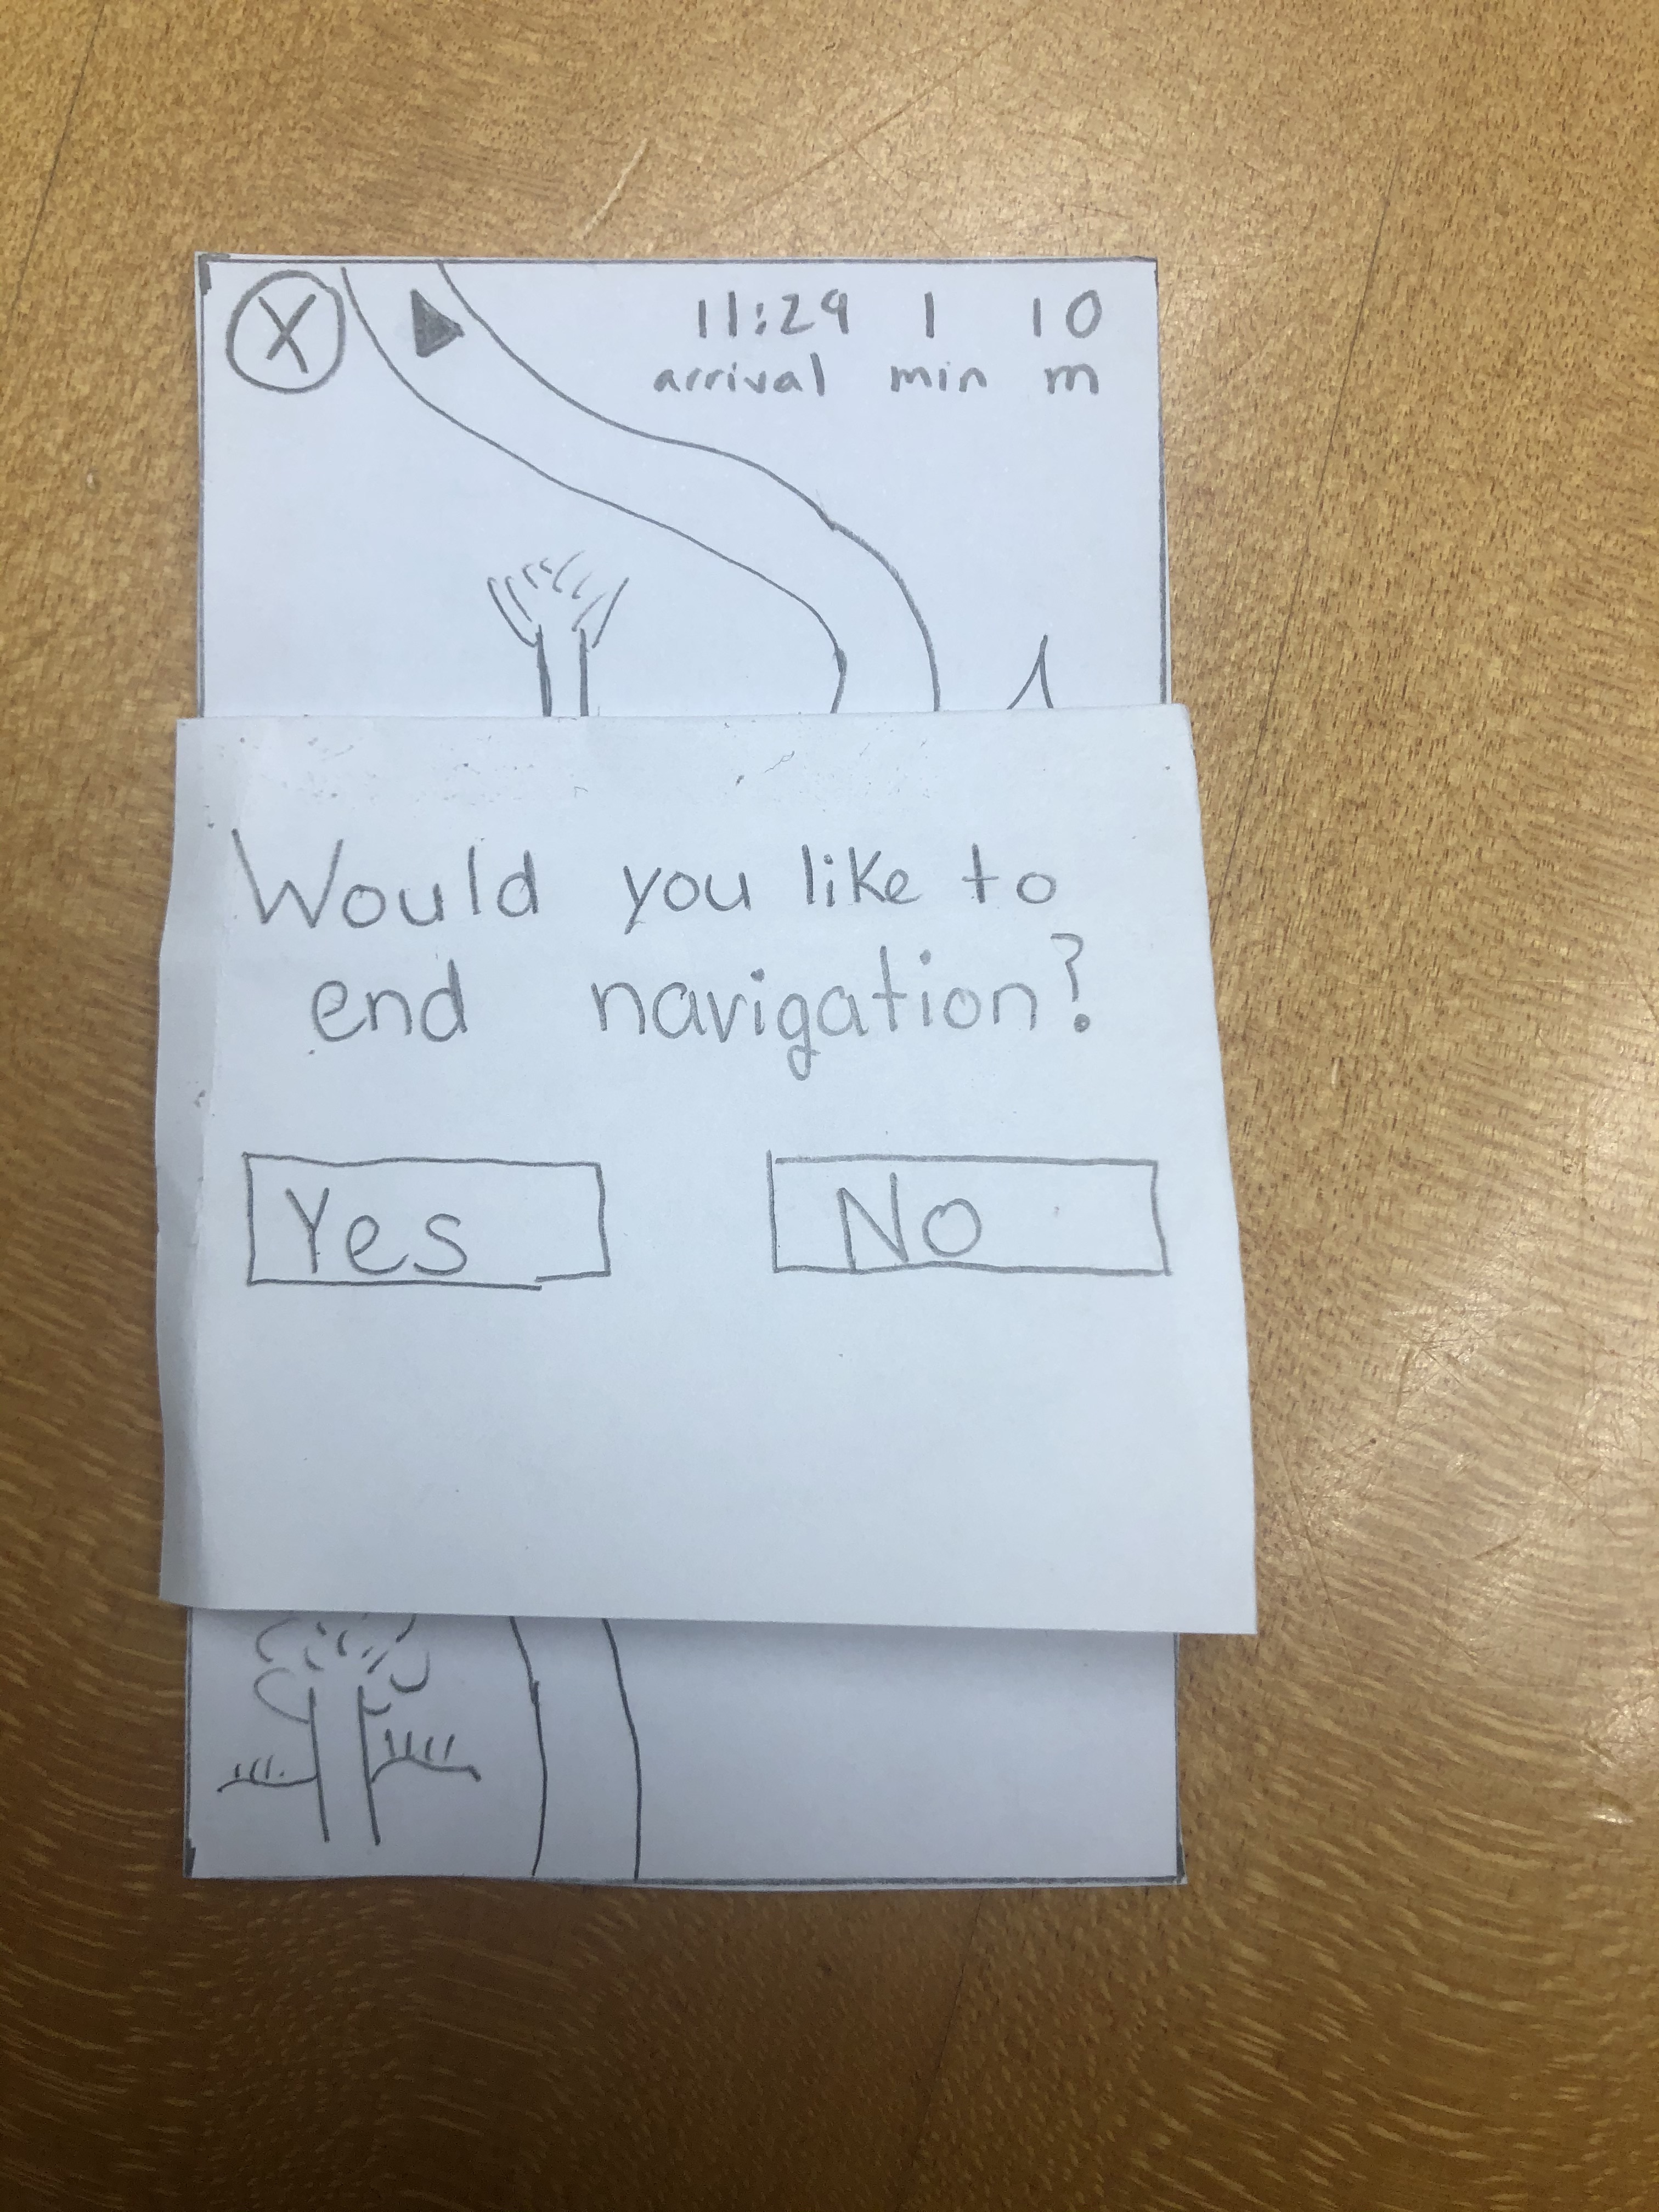 X
11:29 1 10
arrival min m
Would you like to
end navigation?
Yes No